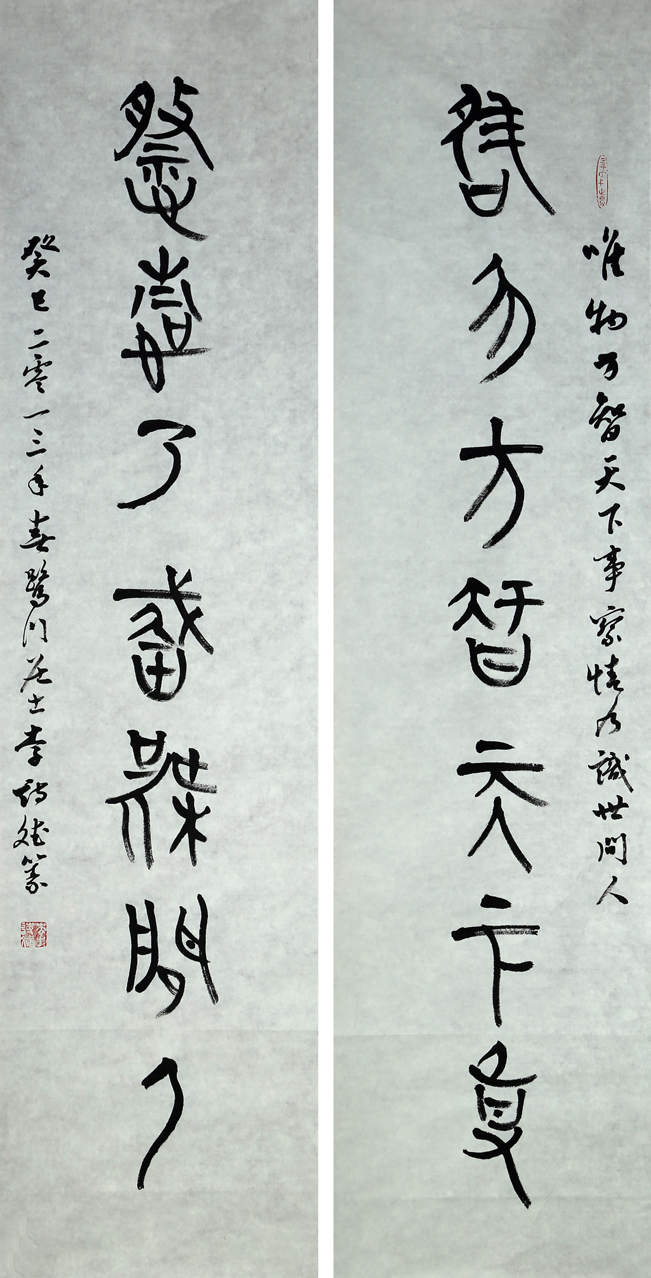 唯物方智天下事
察情乃識世間人
唯物方智天下事察情乃識世間人
癸巳二零一三年春鷺門居士李詩斌篆